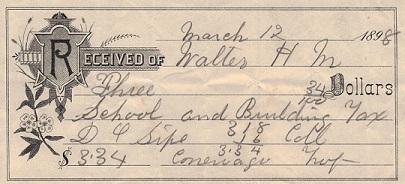 March 12 1898
RECEIVED OF Walter H M
Three 34/100 Dollars
School and Building Tax
D L Sipe 318 Coll
16
$ 3.34 Conewago 334 Twp